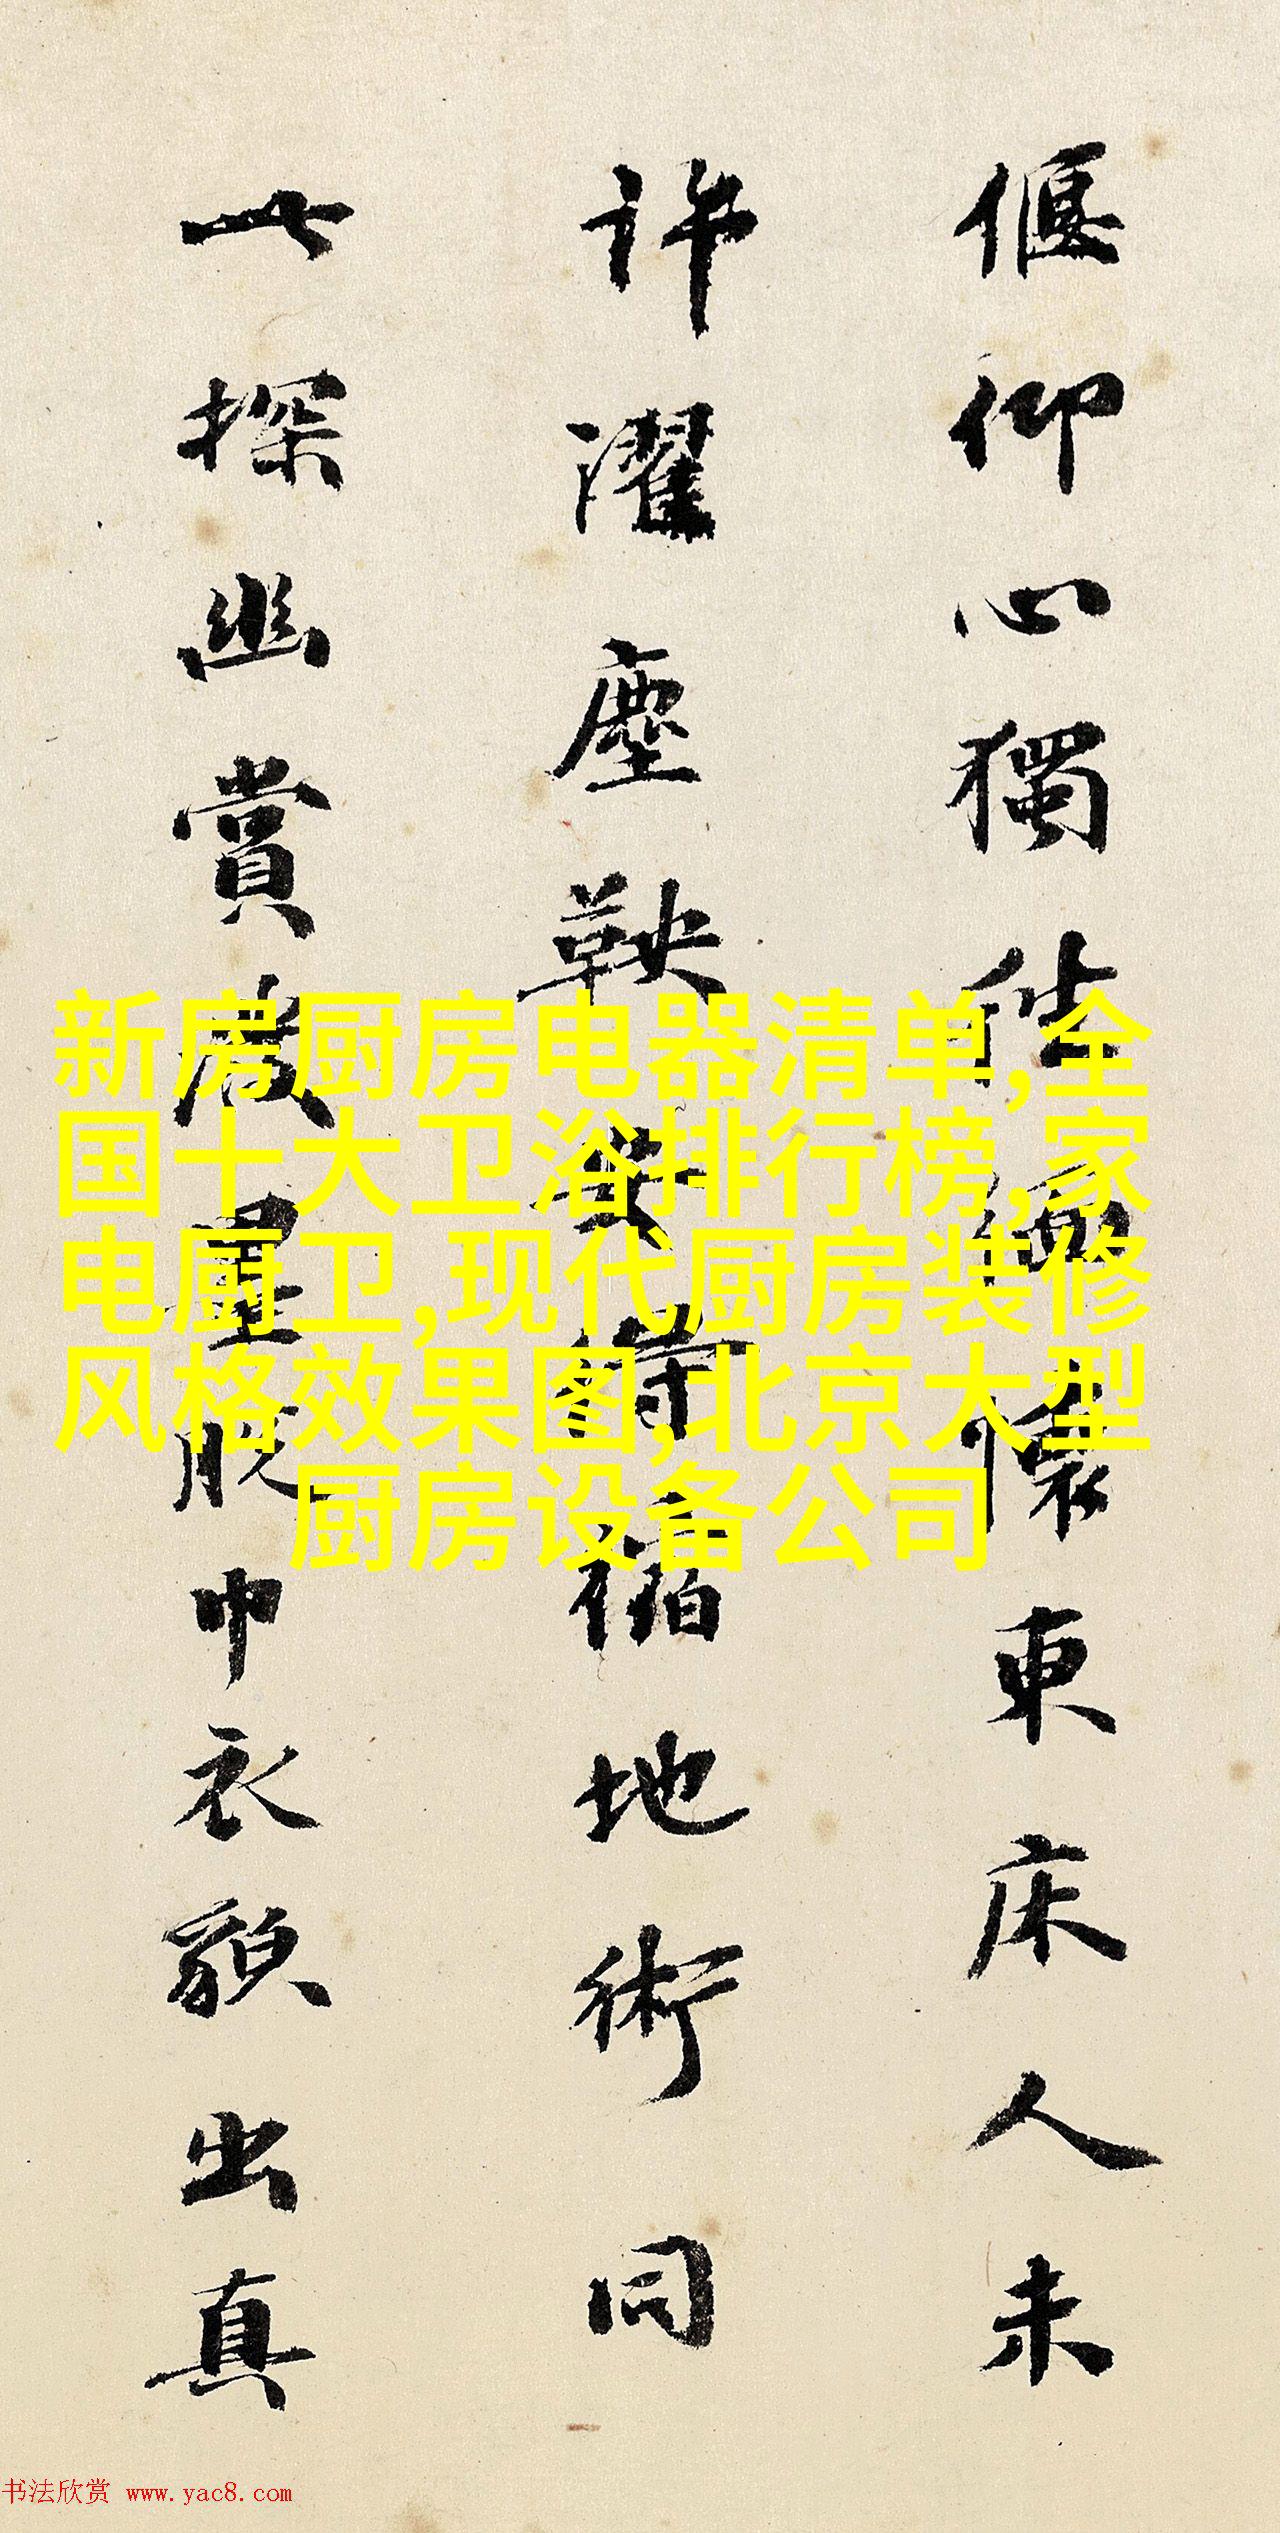 偃仰心獨往緬懷東床人未
許濯塵鞅安得宿地術同
此探幽賞嚴置脫巾衣顏出真
新房厨房电器清单,全
国十大卫浴排行榜,家
电厨卫,现代厨房装修
风格效果图,北京大型
厨房设备公司
书法欣赏 www.yac8.com